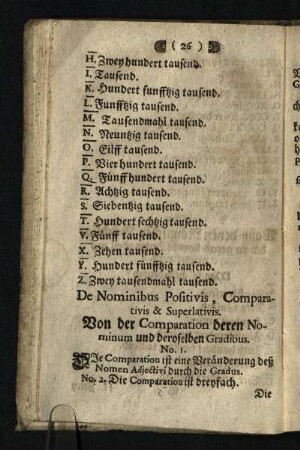 ( 26 )
H. Zwey hundert tausend.
I. Tausend.
K. Hundert funfftzig tausend.
L. Funfftzig tausend.
M. Tausendmahl tausend.
N. Neuntzig tausend.
O. Eilff tausend.
P. Vier hundert tausend.
Q. Fünff hundert tausend.
R. Achtzig tausend.
S. Siebentzig tausend.
T. Hundert sechtzig tausend.
V. Fünff tausend.
X. Zehen tausend.
Y. Hundert fünfftzig tausend.
Z. Zwey tausendmahl tausend.
De Nominibus Positivis, Compara-
tivis & Superlativis.
Von der Comparation deren No-
minum und deroselben Gradibus.
No. 1.
DIe Comparation ist eine Veränderung deß
Nomen Adjectivi durch die Gradus.
No. 2. Die Comparation ist dreyfach.
Die